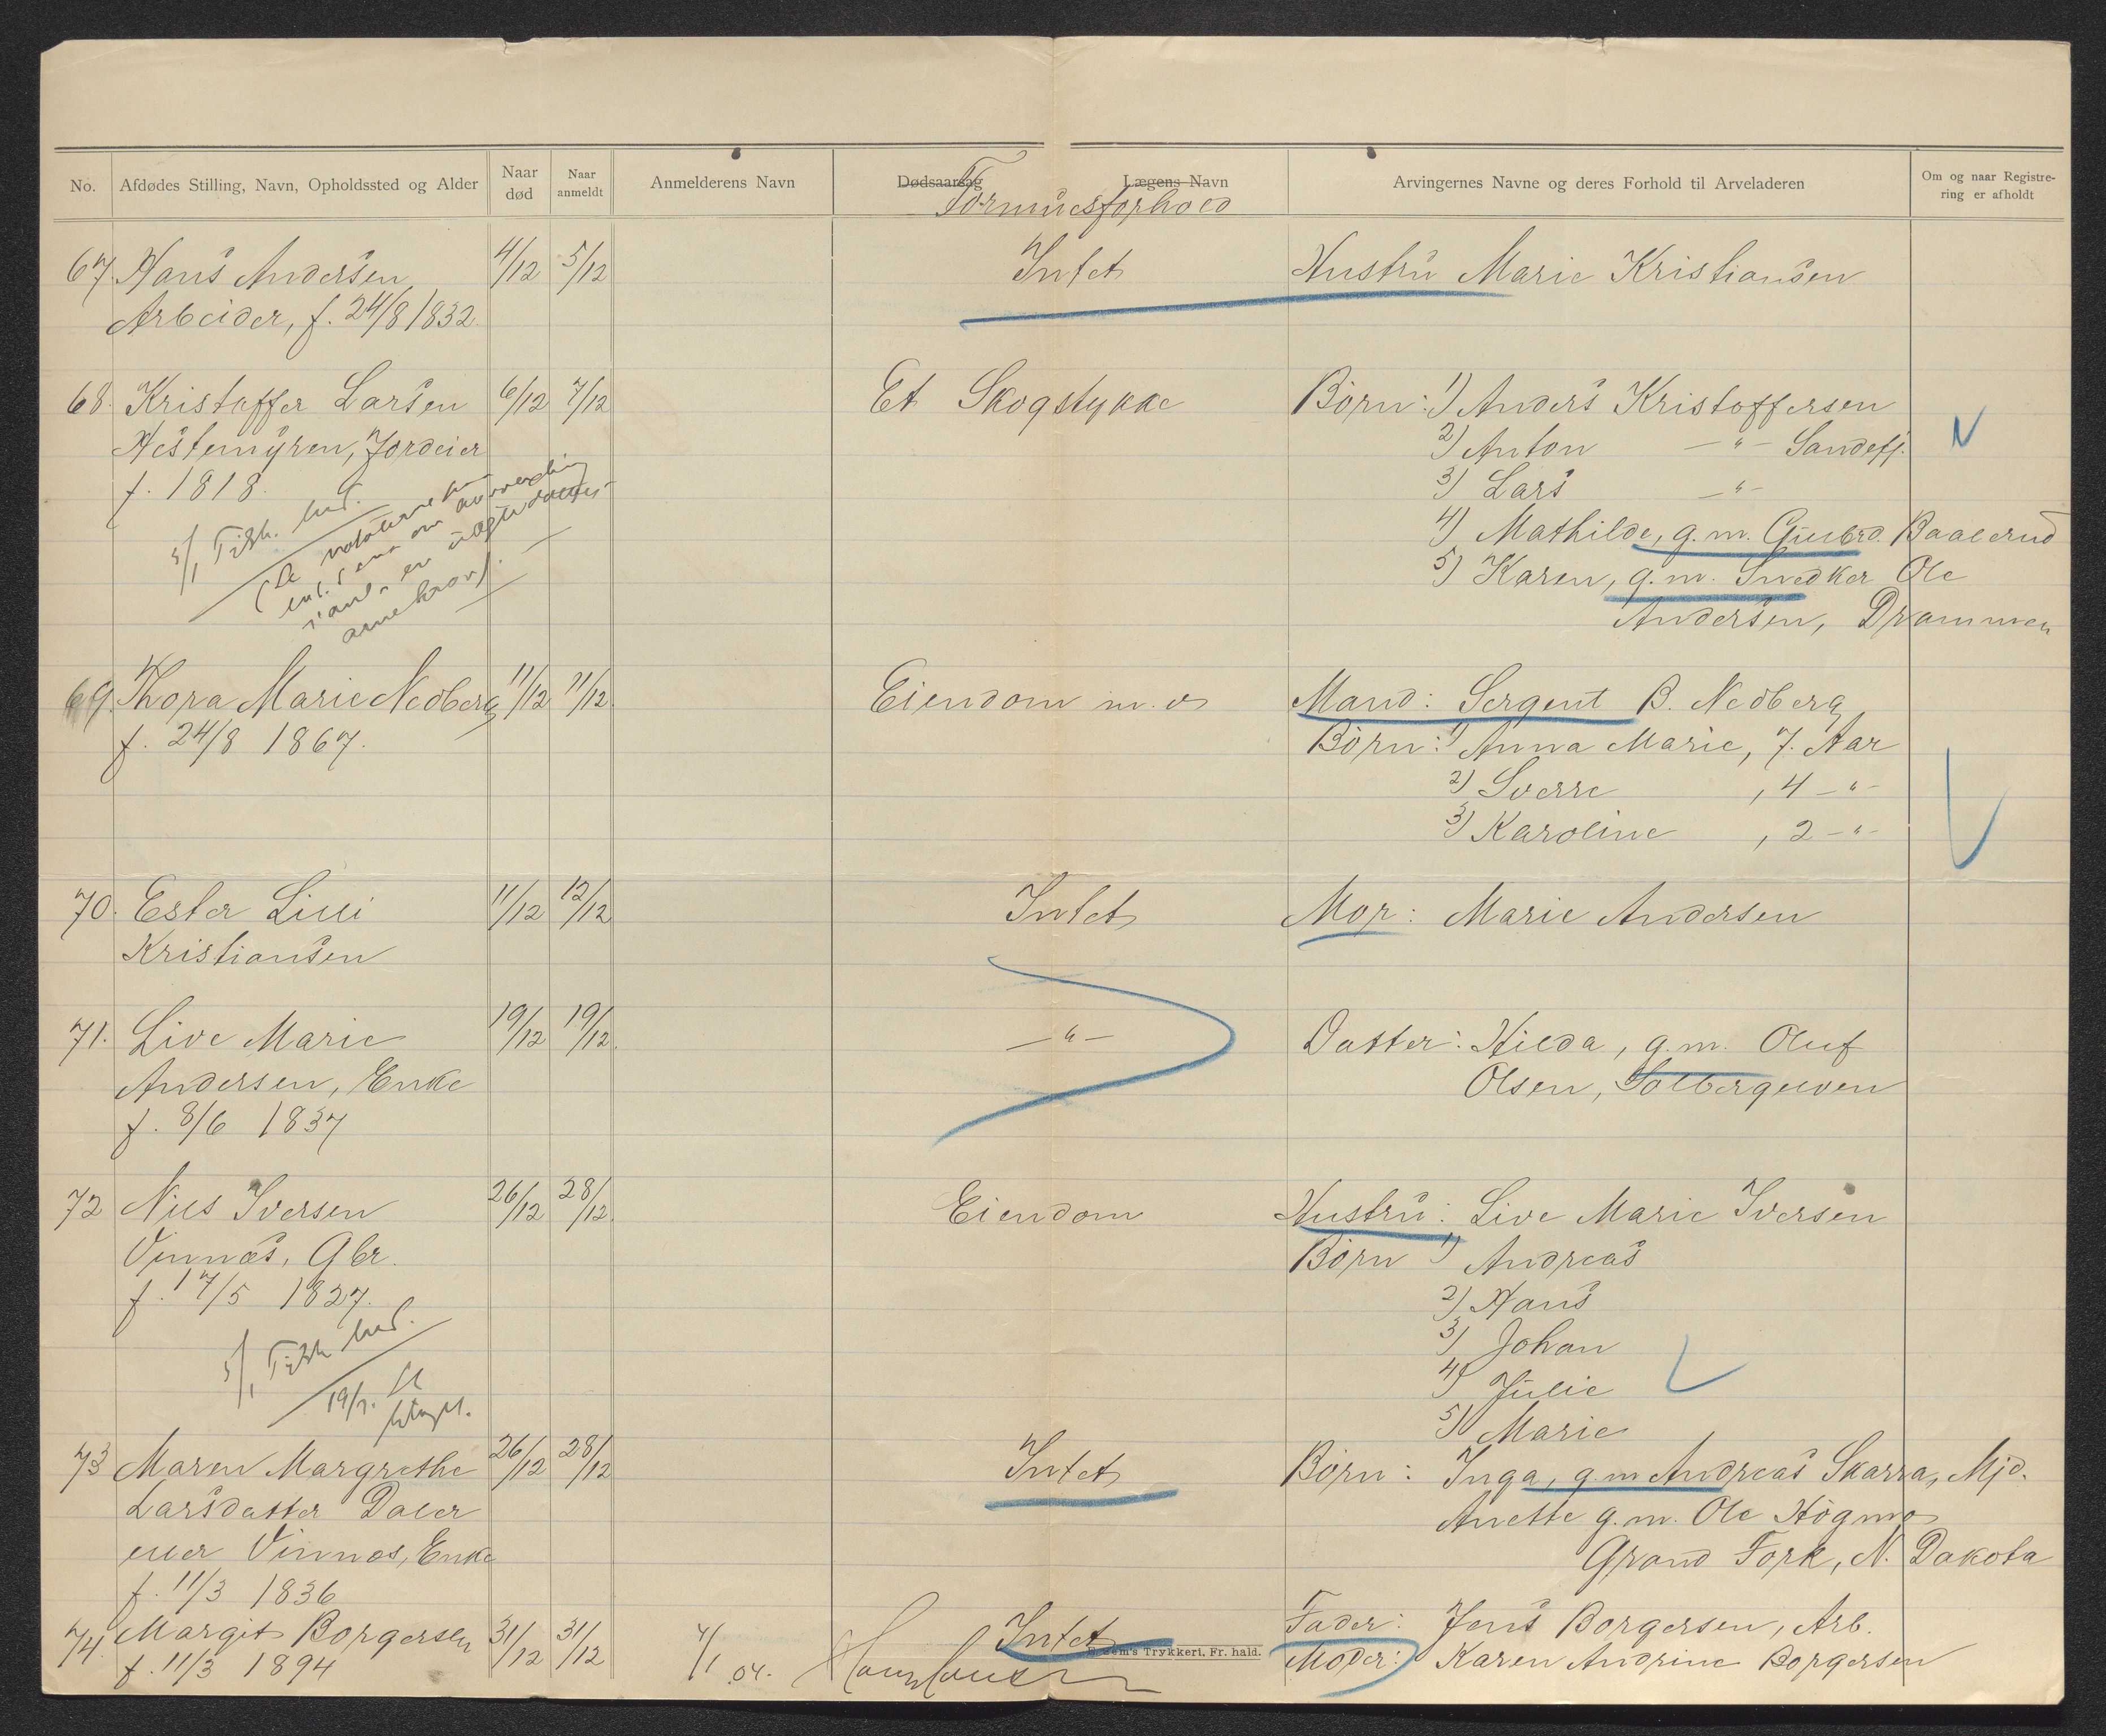 No. Afdødes Stilling, Navn, Opholdssted og Alder Naar død Naar anmeldt Anmelderens Navn Dødsaarsag Lægens Navn Arvingernes Navne og deres Forhold til Arveladeren Om og naar Registrering er afholdt
Formuesforhold
67. Hans Andersen 4/12 5/12 Intet Hustru Marie Kristiansen
Arbeider, f. 24/8 1832.
68. Kristoffer Larsen 6/12 7/12 Et Skogstykke Børn: 1) Anders Kristoffersen
Hestemyren, Jordeier 2) Anton —"— Sandefj.
f. 1818. 3) Lars —"—
5/1 Tilsk.
4) Mathilde, g.m. Gulbrd. Baalerud
5) Karen, g.m. Snedker Ole
Andersen, Drammen
69. Thora Marie Nedberg 11/12 11/12. Eiendom m.v Mand: Sergent B. Nedberg
f. 24/8 1867. Børn: 1) Anna Marie, 7. Aar
2) Sverre , 4 —"—
3) Karoline , 2 —"—
70. Ester Lilli 11/12 12/12 Intet Mor: Marie Andersen
Kristiansen
71. Live Marie 19/12 19/12. —"— Datter: Hilda, g.m. Oluf
Andersen, Enke Olsen, Solbergelven
f. 8/6 1837
72 Nils Iversen 26/12 28/12. Eiendom Hustru: Live Marie Iversen
Vinnæs, Gbr. Børn 1) Andreas
f. 17/5 1827. 2) Hans
3) Johan
5/1 Tilsk. 4) Julie
19/1. 5) Marie
73 Maren Margrethe 26/12 28/12 Intet Børn: Inga, g.m Andreas Skarra, Mjd.
Larsdatter Daler Anette g.m. Ole Høgmo
eller Vinnæs, Enke Grand Fork, N. Dakota
f. 11/3 1836
74. Margit Borgersen 31/12 31/12 4/1 04. Intet Fader: Jens Borgersen, Arb.
f. 11/3 1894 's Trykkeri, Fr. hald. Moder: Karen Andrine Borgersen